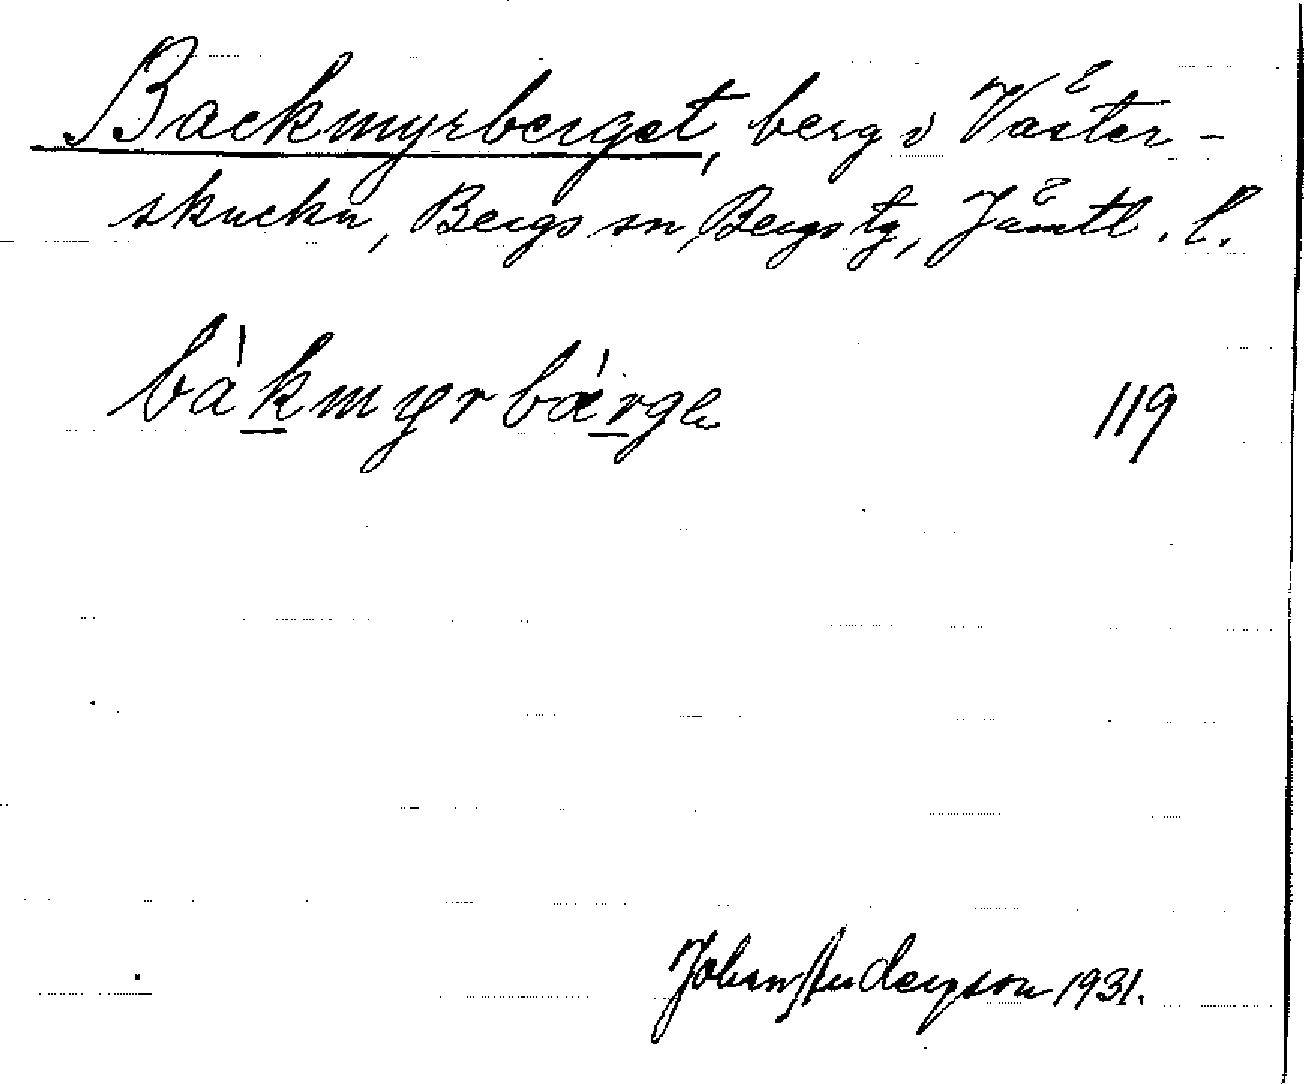 Backmyrberget, berg i Väster-
skucku, Bergs sn, Bergs tg, Jämtl. l.
bàkmyrbærge 119
Johan Anderson 1931.